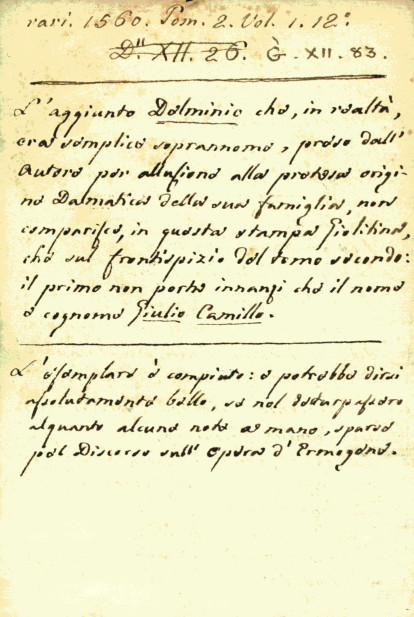 rari. 1560. Tom. 2. Vol. 1. 12°.
D." XII. 26. G. XII. 83.
L'aggiunto Delminio che, in realtà,
era semplice soprannome, preso dall'
Autore per allusione alla pretesa origi-
ne Dalmatica della sua famiglia, non
comparisce, in questa stampa Giolitina,
che sul frontispizio del tomo secondo:
il primo non porta innanzi che il nome
e cognome Giulio Camillo.
L'esemplare è compiuto: e potrebbe dirsi
assolutamente bello, se nol deturpassero
alquanto alcune note a mano, sparse
pel Discorso sull' Opera d'Ermogene.